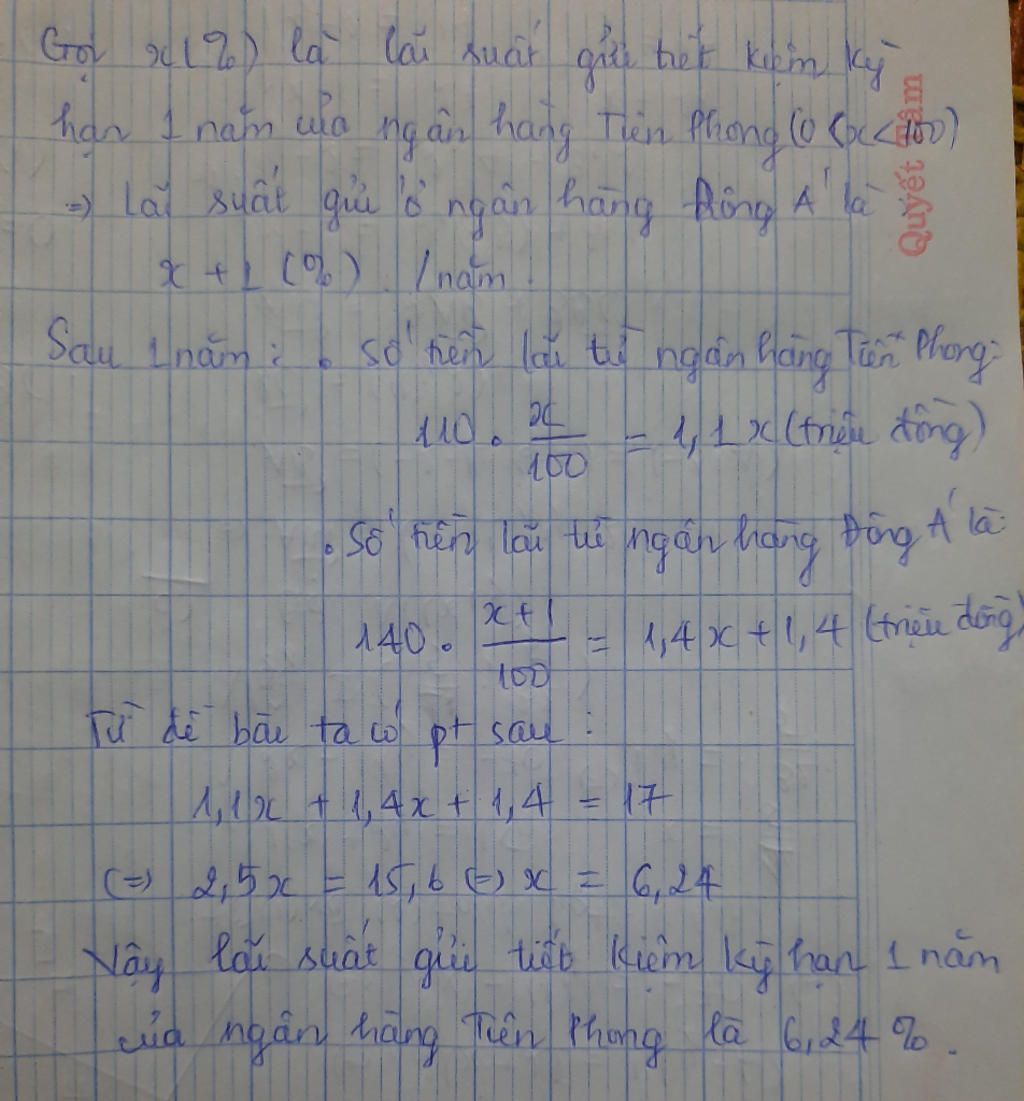 Gọi x(%) là lãi suất gửi tiết kiệm kỳ
hạn 1 năm của ngân hàng Tiên Phong (0<x<100)
=) Lãi suất gửi ở ngân hàng Đông Á là
x + 1 (%) /năm.
Sau 1 năm: • Số tiền lãi từ ngân hàng Tiên Phong:
110 . x/100 = 1,1x (triệu đồng)
• Số tiền lãi từ ngân hàng Đông Á là:
140 . x+1/100 = 1,4x + 1,4 (triệu đồng)
Từ đề bài ta có pt sau:
1,1x + 1,4x + 1,4 = 17
(=) 2,5x = 15,6 (=) x = 6,24
Vậy lãi suất gửi tiết kiệm kỳ hạn 1 năm
của ngân hàng Tiên Phong là 6,24%.
Quyết Tâm